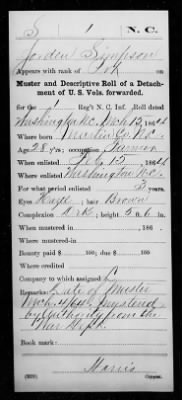 S 1 N. C.
Jordan Simpson
Appears with rank of Pvt on
Muster and Descriptive Roll of a Detach-
ment of U. S. Vols. forwarded.
for the 1 Reg't N. C. Inf. Roll dated
Washington N.C. Mch 12, 1864
Where born Martin Co N.C.
Age 28 y'rs; occupation Farmer
When enlisted Feb 15, 1864
Where enlisted Washington N.C.
For what period enlisted 3 years
Eyes Hazel; hair Brown
Complexion Drk; height 5 ft. 6 in.
When mustered in , 186
Where mustered-in
Bounty paid $ 100; due $ 100
To what company assigned
Remarks: Date of Muster
by authority from the
War Dept.
Book mark:
Harris
Copyist.